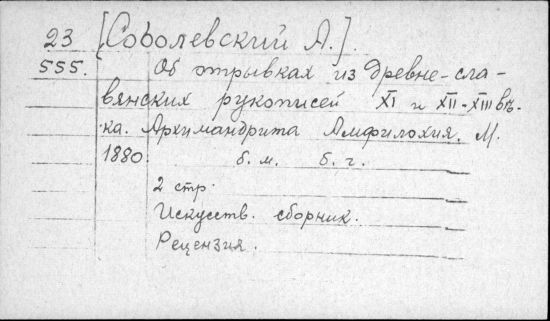 23 [Соболевский А.].
555. Об отрывках из древне-сла-
вянских рукописей XI и XII-XIII вѣ-
ка. Архимандрита Амфилохия. М.
1880. б. м. б. г.
2 стр.
Искусств. сборник.
Рецензия.